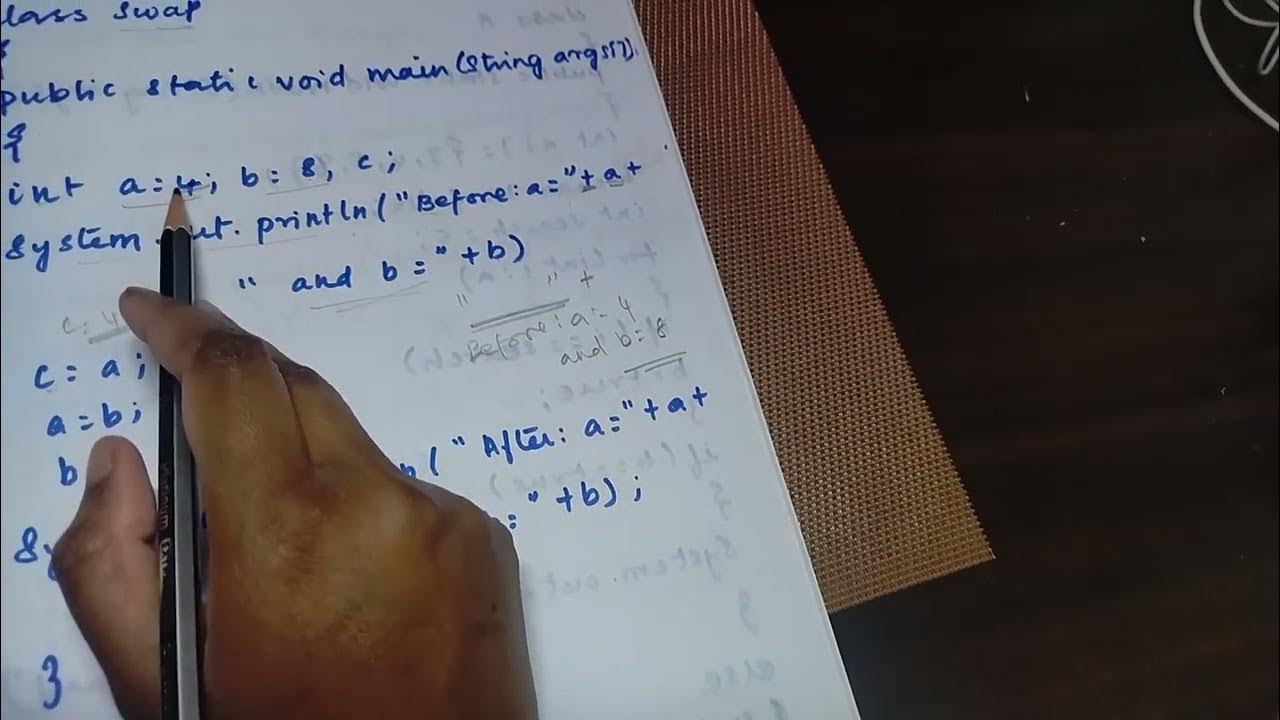 class swap
{
public static void main(String args[])
{
int a=4; b=8, c;
System.out.println("Before: a="+a+
" and b="+b)
" " +
c=4
Before: a=4
and b=8
c=a;
a=b;
b
("After: a="+a+
="+b);
Sy
}